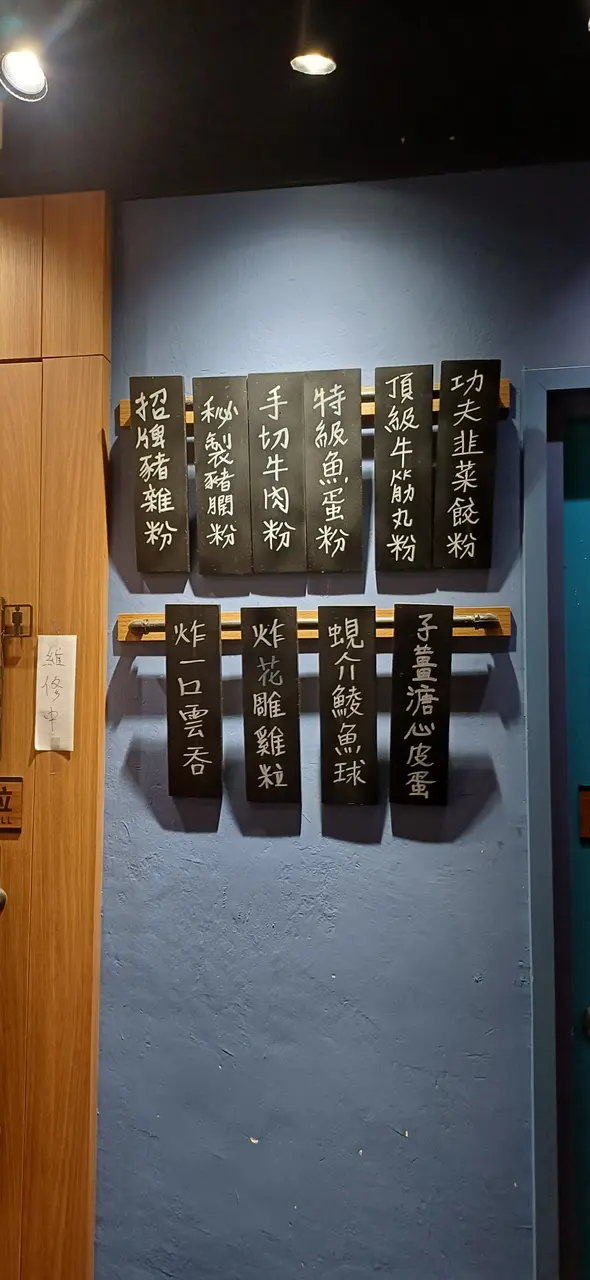 招牌豬雜粉
秘製豬膶粉
手切牛肉粉
特級魚蛋粉
頂級牛筋丸粉
功夫韭菜餃粉
炸一口雲吞
炸花雕雞粒
蜆介鯪魚球
子薑溏心皮蛋
維修中
位
LL